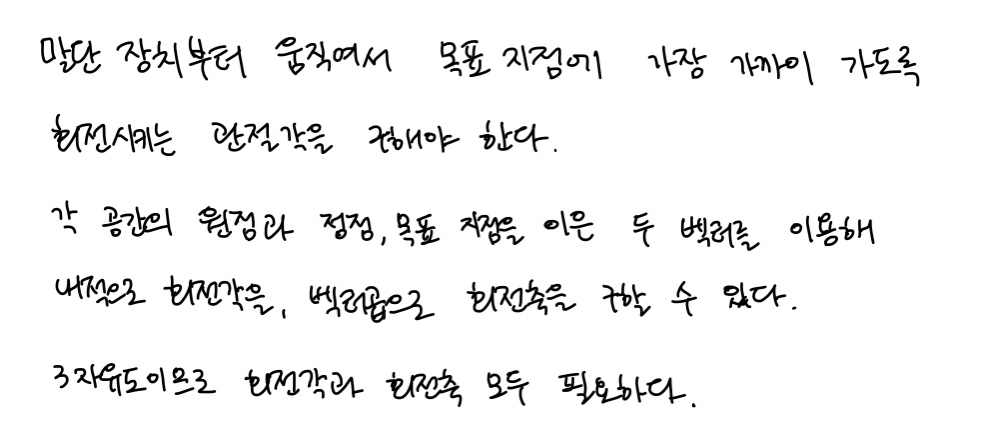 말단 장치부터 움직여서 목표 지점에 가장 가까이 가도록
회전시키는 관절각을 구해야 한다.
각 공간의 원점과 정점, 목표 지점을 이은 두 벡터를 이용해
내적으로 회전각을, 벡터곱으로 회전축을 구할 수 있다.
3자유도이므로 회전각과 회전축 모두 필요하다.